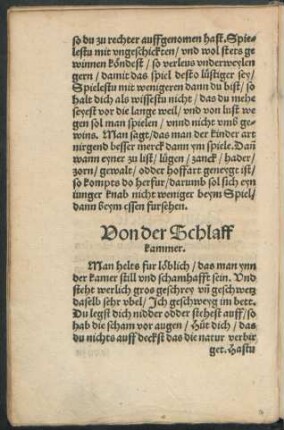 so du zu rechter auffgenomen hast. Spie-
lestu mit vngeschickten / vnd wol stets ge
winnen köndest / so verleus vnderweylen
gern / damit das spiel desto lüstiger sey /
Spielestu mit wenigeren dann du bist / so
halt dich als wissestu nicht / das du mehe
seyest vor die lange weil / vnd von lust we
gen sol man spielen / vnnd nicht vmb ge-
wins. Man sagt / das man der kinder art
nirgend besser merck dann ym spiele. Dañ
wann eyner zu list / lügen / zanck / hader /
zorn / gewalt / odder hoffart geneygt ist /
so kompts do herfur / darumb sol sich eyn
iunger knab nicht weniger beym Spiel /
dann beym essen fursehen.
Von der Schlaff
kammer.
Man helts fur löblich / das man ynn
der kamer still vnd schamhafft sein. Vnd
steht werlich gros geschrey vñ geschwetz
daselb sehr vbel / Ich geschweyg im bett.
Du legst dich nidder odder stehest auff / so
hab die scham vor augen / Hüt dich / das
du nichts auff deckst das die natur verbir
get. Hastu